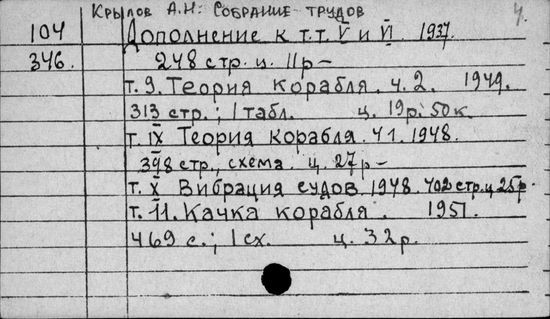 Крылов А.Н. Собрание трудов 4.
104 Дополнение к т.т. V и VI. 1937.
346. 248 стр. ц. 11р-
т. 9. Теория корабля. ч. 2. 1949.
313 стр.; 1 табл. ц. 19р. 50к.
т. IX Теория корабля. ч 1. 1948.
398 стр., схема. ц. 27р-
т. X Вибрация судов. 1948. 402 стр. ц 25р.
т. 11. Качка корабля. 1951.
469 с.; 1 сх. ц. 32р.